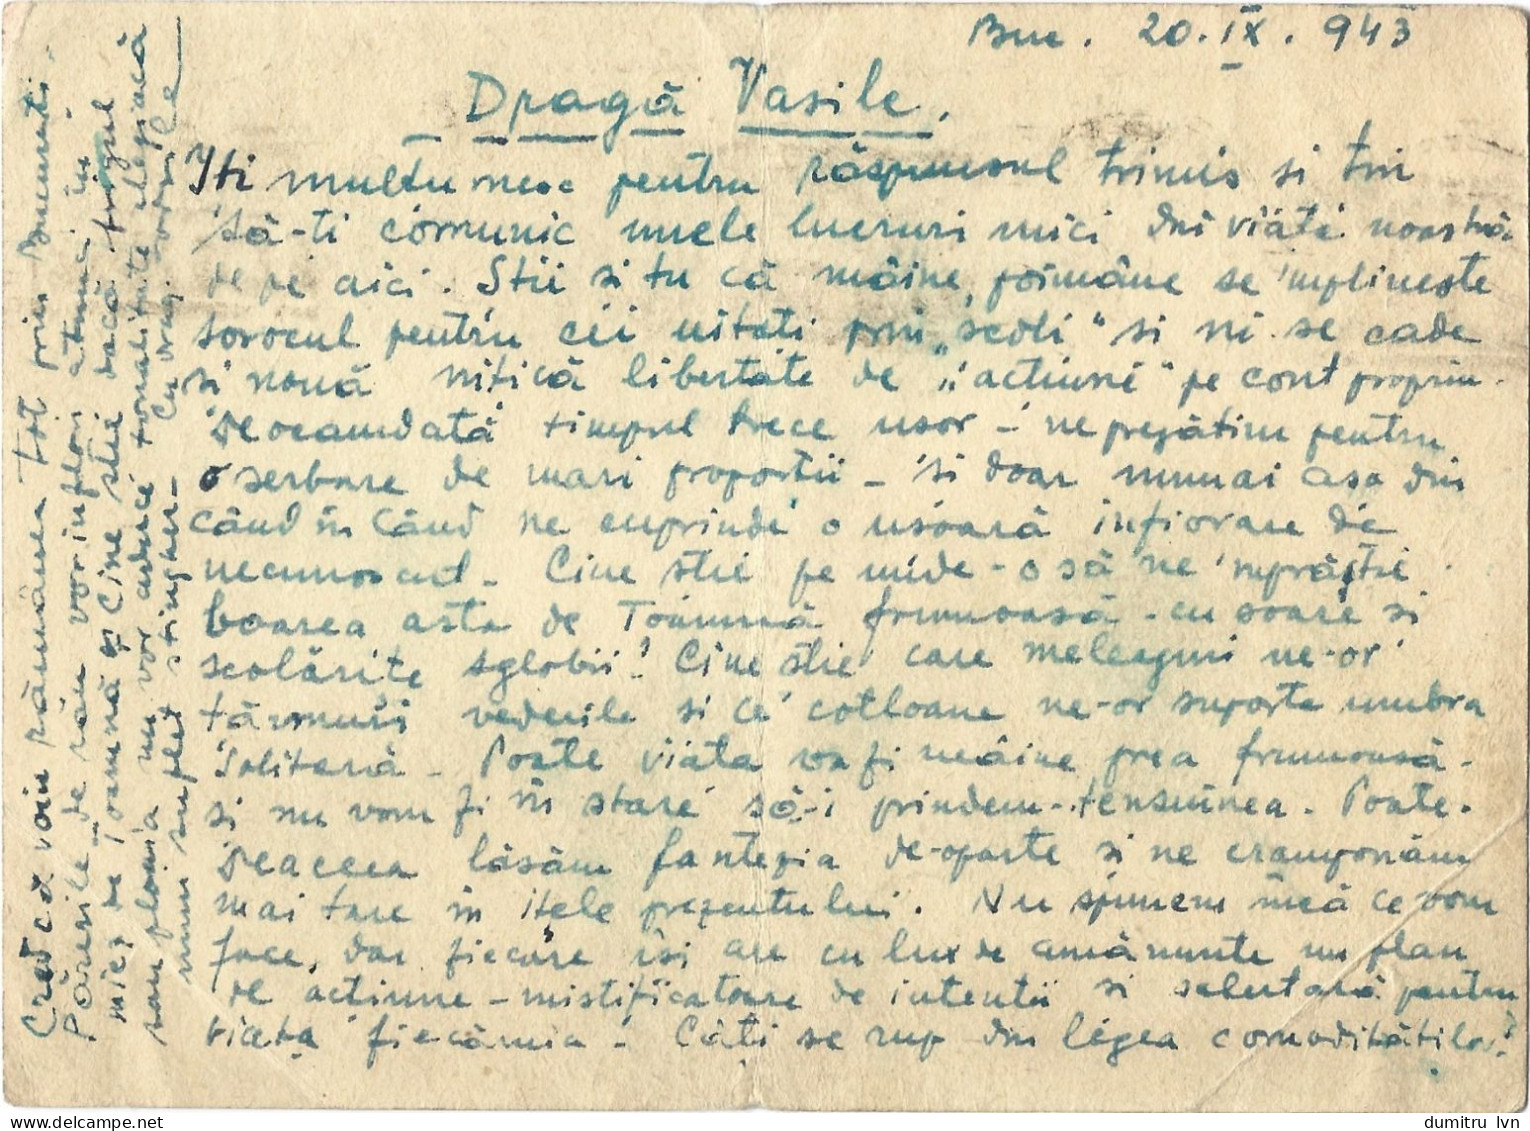 Buc. 20.IX.943
Dragă Vasile,
Iti multumesc pentru răspunsul trimis si tin
să-ti comunic unele lucruri mici din viata noastră
de pe aici. Stii si tu că mâine, poimâne se implineste
sorocul pentru cei uitati prin "scoli" si ni se cade
si nouă nitică libertate de "actiune" pe cont propriu.
Deocamdată timpul trece usor - ne pregătim pentru
o serbare de mari proportii - si doar numai asa din
când în când ne cuprinde o usoară infiorare de
necunoscut. Cine stie pe unde-o să ne imprăstie
boarea asta de Toamnă frumoasă - cu soare si
scolărite sglobii! Cine stie care meleaguri ne-or
tărmuri vederile si ce cotloane ne-or suporta umbra
solitară. Poate viata va fi mâine prea frumoasă.
si nu vom fi în stare să-i prindem tensiunea. Poate.
Deaceea lăsăm fantezia de-oparte si ne cramponăm
mai tare în itele prezentului. Nu spunem incă ce vom
face, dar fiecare îsi are cu lux de amănunte un plan
de actiune - mistificatoare de intentii si salutară pentru
viata fiecăruia. Câti se rup din legea comodităţilor?
Cred că voiu rămânea tot prin Bucuresti.
Părerile de rău vor inflori atunci în
miez de Toamnă și Cine stie dacă frigul
sau ploaia nu vor aduce tonalitate elegiacă
unui suflet stingher - Cu drag